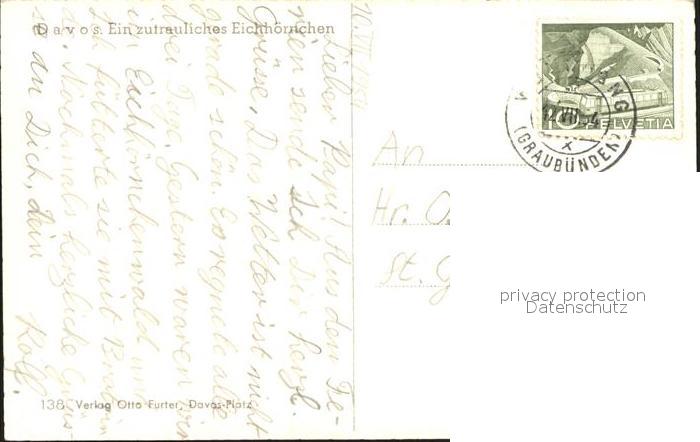 Davos. Ein zutrauliches Eichhörnchen
Lieber Papi! Aus den Fe-
rien sende ich Dir herzl.
Grüsse. Das Wetter ist nicht
gerade schön. Es regnete alle
drei Tage. Gestern waren wir
im Eichhörnchenwald und
ich fütterte sie mit Brot
Nochmals herzliche Grüs-
se an Dich, Dein
Rolf.
138 Verlag Otto Furter, Davos-Platz
HELVETIA
(GRAUBÜNDEN)
An
Hr. O.
St. G
privacy protection
Datenschutz